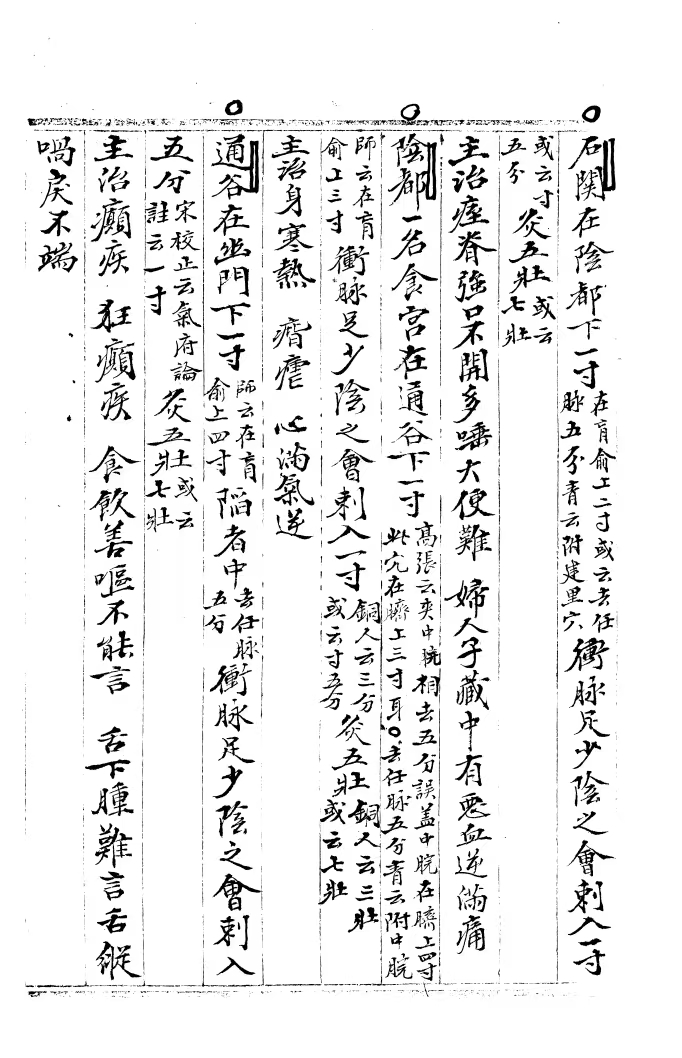 石関在陰都下一寸在肓俞上二寸或云去任脉五分青云附建里穴衝脉足少陰之會刺入一寸
或云寸五分灸五壯或云七壯
主治痙脊強口不開多唾大便難 婦人子藏中有惡血逆満痛
陰都一名食宮在通谷下一寸髙張云夾中脘相去五分誤盖中脘在臍上四寸此穴在臍上三寸耳〇去任脉五分青云附中脘
師云在肓俞上三寸衝脉足少陰之會刺入一寸銅人云三分或云寸五分灸五壯銅人云三壯或云七壯
主治身寒熱 痟瘧 心満氣逆
通谷在幽門下一寸師云在肓俞上四寸陷者中去任脉五分衝脉足少陰之會刺入
五分宋校正云氣府論註云一寸灸五壯或云七壯
主治癲疾 狂癲疾 食飲善嘔不能言 舌下腫難言舌縱
喎戾不端